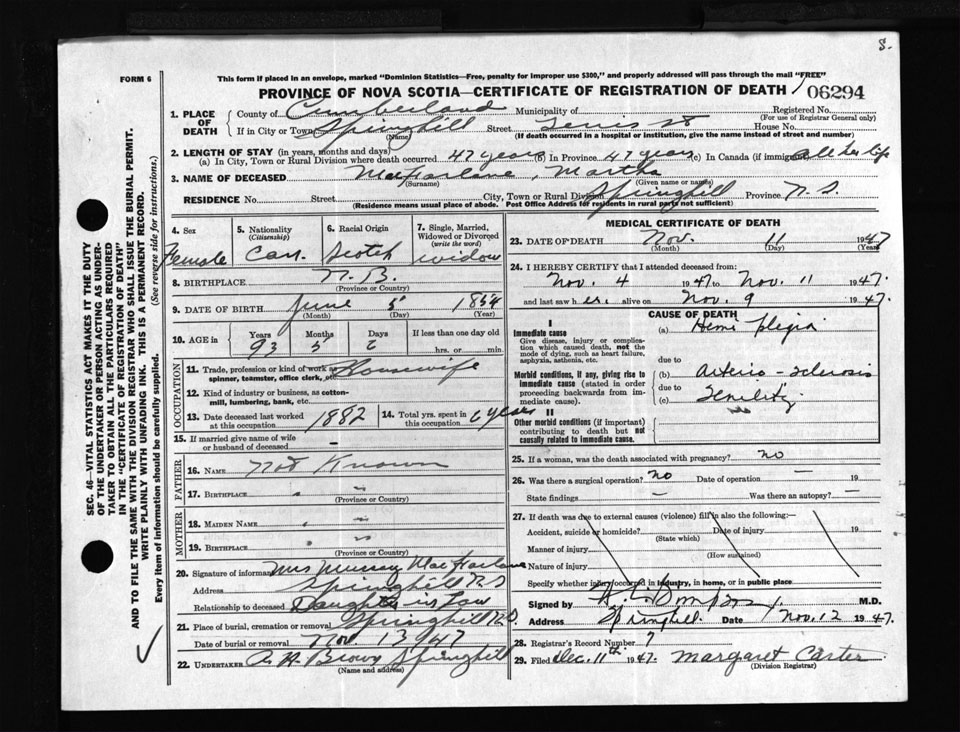 S.
FORM 6
This form if placed in an envelope, marked "Dominion Statistics—Free, penalty for improper use $300," and properly addressed will pass through the mail "FREE"
PROVINCE OF NOVA SCOTIA—CERTIFICATE OF REGISTRATION OF DEATH 06294
1. PLACE OF DEATH County of Cumberland Municipality of Registered No.
(For use of Registrar General only)
If in City or Town Springhill Street House No.
(Name) (If death occurred in a hospital or institution, give the name instead of street and number)
2. LENGTH OF STAY (in years, months and days)
(a) In City, Town or Rural Division where death occurred 47 years (b) In Province 47 years (c) In Canada (if immigrant) All her life
3. NAME OF DECEASED MacFarlane, Martha
(Surname) (Given name or names)
RESIDENCE No. Street City, Town or Rural Division Springhill Province N.S.
(Residence means usual place of abode. Post Office Address for residents in rural parts not sufficient)
SEC. 46—VITAL STATISTICS ACT MAKES IT THE DUTY
OF THE UNDERTAKER OR PERSON ACTING AS UNDER-
TAKER TO OBTAIN ALL THE PARTICULARS REQUIRED
IN THE "CERTIFICATE OF REGISTRATION OF DEATH"
AND TO FILE THE SAME WITH THE DIVISION REGISTRAR WHO SHALL ISSUE THE BURIAL PERMIT.
WRITE PLAINLY WITH UNFADING INK. THIS IS A PERMANENT RECORD.
Every item of information should be carefully supplied. (See reverse side for instructions.)
4. Sex 5. Nationality (Citizenship) 6. Racial Origin 7. Single, Married, Widowed or Divorced (write the word)
Female Can. Scotch Widow
8. BIRTHPLACE N.B.
(Province or Country)
9. DATE OF BIRTH June 5 1854
(Month) (Day) (Year)
10. AGE in Years Months Days If less than one day old
93 5 6 hrs. or min.
OCCUPATION
11. Trade, profession or kind of work as spinner, teamster, office clerk, etc. Housewife
12. Kind of industry or business, as cotton-mill, lumbering, bank, etc.
13. Date deceased last worked at this occupation 1882 14. Total yrs. spent in this occupation years
15. If married give name of wife or husband of deceased –
FATHER
16. NAME Not Known
17. BIRTHPLACE
(Province or Country)
MOTHER
18. MAIDEN NAME
19. BIRTHPLACE
(Province or Country)
20. Signature of informant Mrs Murray MacFarlane
Address Springhill N.S
Relationship to deceased Daughter in Law
21. Place of burial, cremation or removal Springhill N.S
Date of burial or removal Nov. 13 1947
22. UNDERTAKER A. H. Brown Springhill
(Name and address)
MEDICAL CERTIFICATE OF DEATH
23. DATE OF DEATH Nov. 11 1947
(Month) (Day)
24. I HEREBY CERTIFY that I attended deceased from:
Nov. 4 1947 to Nov. 11 1947
and last saw her alive on Nov. 9 1947.
CAUSE OF DEATH
I
Immediate cause (a) Hemi plegia
Give disease, injury or complication which caused death, not the mode of dying, such as heart failure, asphyxia, asthenia, etc. due to
Morbid conditions, if any, giving rise to immediate cause (stated in order proceeding backwards from immediate cause). (b) Arterio-sclerosis
due to
(c) Senility
II
Other morbid conditions (if important) contributing to death but not causally related to immediate cause.
25. If a woman, was the death associated with pregnancy? no
26. Was there a surgical operation? no Date of operation — 19
State findings — Was there an autopsy? –
27. If death was due to external causes (violence) fill in also the following:—
Accident, suicide or homicide? Date of injury 19
(State which)
Manner of injury
(How sustained)
Nature of injury
Specify whether injury occurred in industry, in home, or in public place
Signed by M.D.
Address Springhill Date Nov. 12 1947.
28. Registrar's Record Number 7
29. Filed Dec. 11th 1947. Margaret Carter
(Division Registrar)